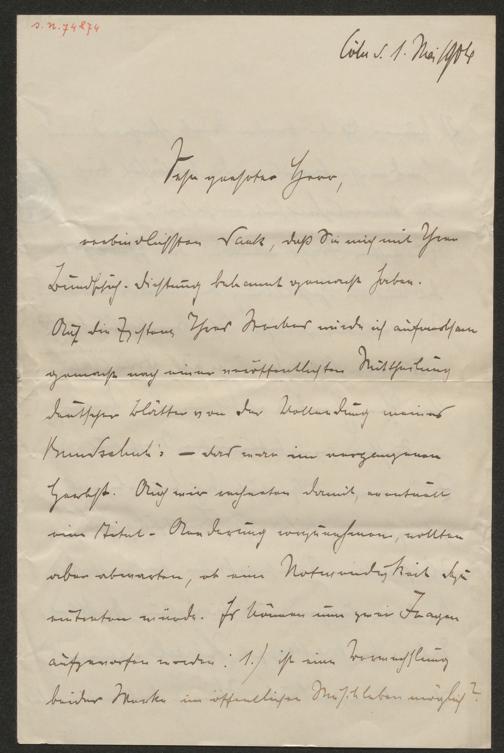 S.N. 74874
Cöln d. 1. Mai 1904
Sehr geehrter Herr,
verbindlichsten Dank, daß Sie mich mit Ihrer
Bundschuh-Dichtung bekannt gemacht haben.
Auf die Existenz Ihres Werkes wurde ich aufmerksam
gemacht nach einer veröffentlichten Mittheilung
deutscher Blätter von der Vollendung meines
Bundschuh's – das war im vergangenen
Herbst. Auch wir rechneten damit, eventuell
eine Titel-Aenderung vorzunehmen, wollten
aber abwarten, ob eine Notwendigkeit dazu
eintreten würde. Es können nun zwei Fragen
aufgeworfen werden: 1.) ist eine Verwechslung
beider Werke im öffentlichen Musikleben möglich?